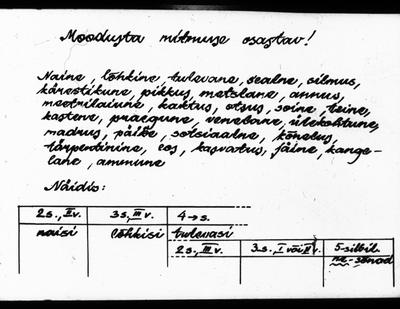 Moodusta mitmuse osastav!
Naine, lõhkine, tulevane, sealne, silmus,
kärestikune, pikkus, metslane, annus,
meetrilaiune, kaktus, otsus, soine, teine,
kastene, praegune, venelane, ülekohtune,
madrus, päike, sotsiaalne, kõnelus,
tärpentinine, eos, kasvatus, jäine, kange-
lane, ammune
Näidis:
2s., II v. 3s., III v. 4→s.
naisi lõhkisi tulevasi
2s., III v. 3.s., I või II v. 5-silbil.
ne-sõnad